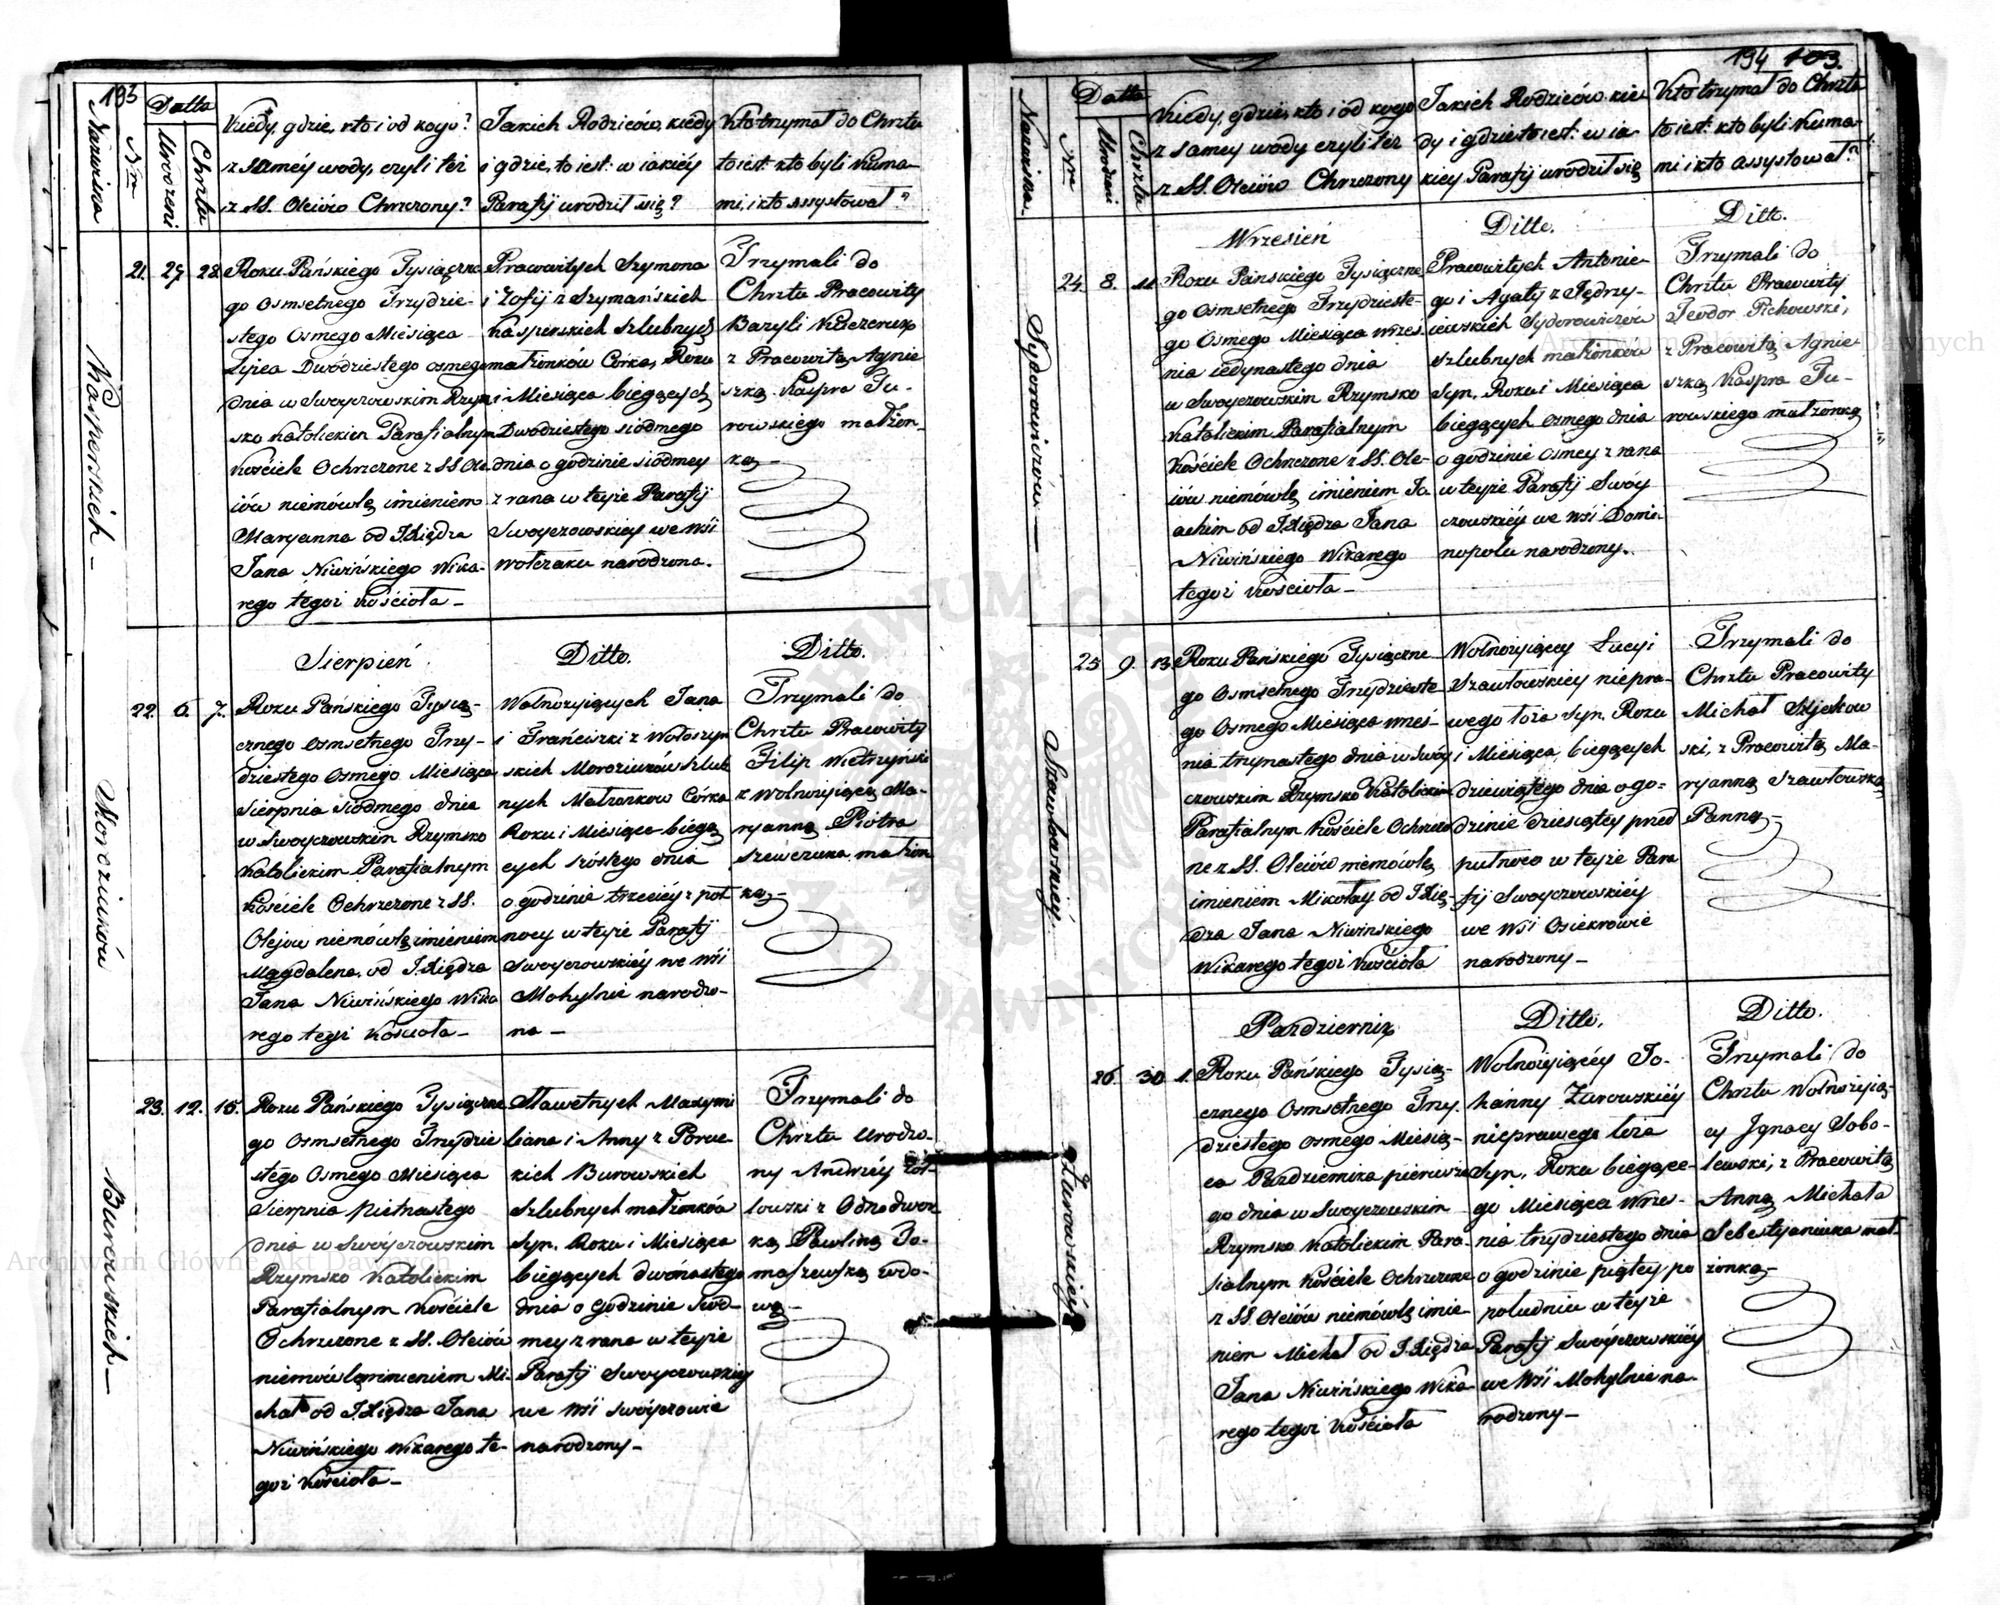 193
Nazwiska
Nra
Datta
Urodzeni
Chrztu
Kiedy, gdzie, kto i od kogo?
z samey wody, czyli też
z SS. Oleiów Chrzczony?
Jakich Rodziców, kiedy
i gdzie, to iest: w iakiéy
Parafij urodził się?
Kto trzymał do Chrztu
to iest: kto byli Kuma-
mi, i kto assystował?
Kasperskich –
21. 27. 28.
Roku Pańskiego Tysiączne
go Osmsetnego Trzydzie-
stego Osmego Miesiąca
Lipca Dwódziestego osmego
dnia w Swoyczowskim Rzym
sko Katolickim Parafialnym
Kościele Ochrzczone z SS. Ole
iów niemówlę imieniem
Maryanna od J.Xiędza
Jana Niwińskiego Wika-
rego tegoż Kościoła –
Pracowitych Szymona
i Zofij z Szymańskich
Kasperskich szlubnych
małżonków Córka, Roku
i Miesiąca biegących
Dwodziestego siódmego
dnia o godzinie siódmey
z rana w teyże Parafij
Swoyczowskiey we Wsi
Wołczaku narodzona.
Trzymali do
Chrztu Pracowity
Bazyli Kuczeruk
z Pracowitą Agnie
szką Kaspra Tu-
rowskiego małżon-
ką –
Moroziuków
Sierpień
Ditto.
Ditto.
22. 6. 7.
Roku Pańskiego Tysią-
cznego Osmsetnego Trzy-
dziestego Osmego Miesiąca
Sierpnia siódmego dnia
w Swoyczowskim Rzymsko
Katolickim Parafialnym
Kościele Ochrzczone z SS.
Olejów niemówlę imieniem
Magdalena, od J.Xiędza
Jana Niwińskiego Wika
rego tegż Kościoła –
Wolnożyjących Jana
i Franciszki z Wołoszyn
skich Moroziuków Szlub
nych Małżonków Córka
Roku i Miesiąca biegą
cych szóstego dnia
o godzinie trzeciéy z poł
nocy w teyże Parafij
Swoyczowskiéy we Wsi
Mohylnie narodzo-
na –
Trzymali do
Chrztu Pracowity
Filip Wietrzyński
z Wolnożyjącą Ma-
ryanną Piotra
Szewczuka małżon
ką –
Burowskich –
23. 12. 15.
Roku Pańskiego Tysiączne
go Osmsetnego Trzydzie
stego Osmego Miesiąca
Sierpnia piętnastego
dnia w Swóyczowskim
Rzymsko Katolickim
Parafialnym Kościele
Ochrzczone z SS. Oleiów
niemówlę imieniem Mi-
chał od J.Xiędza Jana
Niwińskiego Wikarego te-
goż Kościoła –
Sławetnych Maxymi
liana i Anny z
kich Burowskich
Szlubnych małżonków
Syn. Roku i Miesiąca
biegących dwónastego
dnia o Godzinie siód-
mey z rana w teyże
Parafij Swoyczowskiey
we Wsi Swóyczowie
narodzony –
Trzymali do
Chrztu Urodzo-
ny Andrzéy
z Odnodwor
ką Pawliną To-
maszewską wdo-
wą –
194 103.
Nazwiska
Nra
Datta
Urodzeni
Chrztu
Kiedy, gdzie, kto i od kogo
z samey wody czyli też
z SS. Oleiów Chrzczony
Jakich Rodziców kie
dy i gdzie to iest: w ia
kiey Parafij urodził się
Kto trzymał do Chrztu
to iest: kto byli Kuma-
mi i kto assystował?
Sydorowiczów –
Wrzesień
Ditto.
Ditto.
24. 8. 11.
Roku Pańskiego Tysiączne
go Osmsetnego Trzydzieste-
go Osmego Miesiąca Wrześ
nia iedynastego dnia
w Swoyczowskim Rzymsko
Katolickim Parafialnym
Kościele Ochrzczone z SS. Ole-
iów niemówlę imieniem Jo
achim od J.Xiędza Jana
Niwińskiego Wikarego
tegoż Kościoła –
Pracowitych Antonie-
go i Agaty z Jędrzy-
iewskich Sydorowiczów
szlubnych małżonków
Syn, Roku i Miesiąca
biegących Osmego dnia
o godzinie osmey z rana
w teyże Parafij Swóy
czowskiéy we Wsi Domi-
nopolu narodzony.
Trzymali do
Chrztu Pracowity
Teodor Pichowski,
z Pracowitą Agnie-
szką Kaspra Tu-
rowskiego małżonką
Szawłowskiéy
25 9. 13.
Roku Pańskiego Tysiączne
go Osmsetnego Trzydzieste
go Osmego Miesiąca Wrześ-
nia trzynastego dnia w Swóy
czowskim Rzymsko Katolickim
Parafialnym Kościele Ochrzczo
ne z SS. Oleiów niemówlę
imieniem Mikołay od J.Xię-
dza Jana Niwinskiego
Wikarego tegoż Kościoła
Wolnożyjącey Łucyi
Szawłowskiey niepra-
wego łoża Syn. Roku
i Miesiąca biegących
dziewiątego dnia o go-
dzinie dziesiątey przed
w teyże Para
fij Swoyczowskiéy
we Wsi Osiekrowie
narodzony –
Trzymali do
Chrztu Pracowity
Michał
ski, z Pracowitą Ma-
ryanną Szawłowską
Panną –
Żurowskiéy
Pazdziernik
Ditto.
Ditto.
26. 30 1.
Roku Pańskiego Tysią-
cznego Osmsetnego Trzy-
dziestego Osmego Miesią-
ca Pazdziernika pierwsze
go dnia w Swoyczowskim
Rzymsko Katolickim Para-
fialnym Kościele Ochrzczone
z SS. Oleiów niemówlę imie-
niem Michał od J.Xiędza
Jana Niwińskiego Wika-
rego tegoż Kościoła
Wolnożyjącéy Jo-
hanny Żurowskiéy
nieprawego łoża
Syn, Roku biegące-
go Miesiąca Wrze-
nia trzydziestego dnia
o godzinie piątey po
południu w teyże
Parafij Swóyczowskiéy
we Wsi Mohylnie na-
rodzony –
Trzymali do
Chrztu Wolnożyją-
cy Jgnacy Sobo-
lewski, z Pracowitą
Anną Michała
Sebestyaniuka mał-
żonką –
Archiwum Główne Akt Dawnych
Archiwum Główne Akt Dawnych